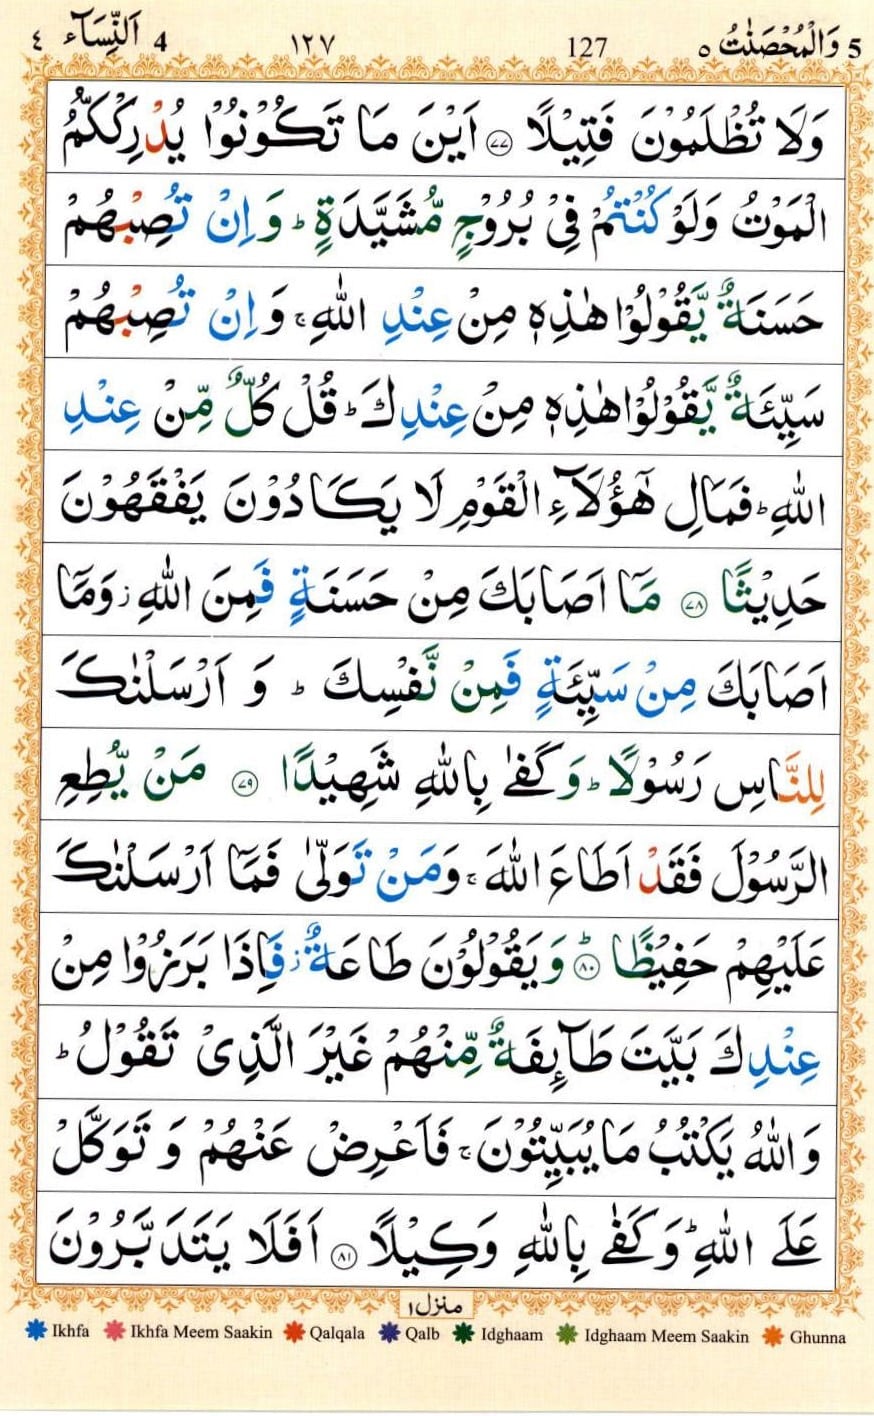 5 وَالْمُحْصَنٰتُ ٥ 127 ١٢٧ 4 اَلنِّسَآء ٤
وَلَا تُظْلَمُوْنَ فَتِيْلًا ﴿٧٧﴾ اَيْنَ مَا تَكُوْنُوْا يُدْرِكْكُّمُ
الْمَوْتُ وَلَوْ كُنْتُمْ فِىْ بُرُوْجٍ مُّشَيَّدَةٍ ؕ وَاِنْ تُصِبْهُمْ
حَسَنَةٌ يَّقُوْلُوْا هٰذِهٖ مِنْ عِنْدِ اللّٰهِ ۚ وَاِنْ تُصِبْهُمْ
سَيِّئَةٌ يَّقُوْلُوْا هٰذِهٖ مِنْ عِنْدِكَ ؕ قُلْ كُلٌّ مِّنْ عِنْدِ
اللّٰهِ ؕ فَمَالِ هٰٓؤُلَآءِ الْقَوْمِ لَا يَكَادُوْنَ يَفْقَهُوْنَ
حَدِيْثًا ﴿٧٨﴾ مَآ اَصَابَكَ مِنْ حَسَنَةٍ فَمِنَ اللّٰهِ ز وَمَآ
اَصَابَكَ مِنْ سَيِّئَةٍ فَمِنْ نَّفْسِكَ ؕ وَ اَرْسَلْنٰكَ
لِلنَّاسِ رَسُوْلًا ؕ وَكَفٰى بِاللّٰهِ شَهِيْدًا ﴿٧٩﴾ مَنْ يُّطِعِ
الرَّسُوْلَ فَقَدْ اَطَاعَ اللّٰهَ ۚ وَمَنْ تَوَلّٰى فَمَآ اَرْسَلْنٰكَ
عَلَيْهِمْ حَفِيْظًا ؕ﴿٨٠﴾ وَيَقُوْلُوْنَ طَاعَةٌ ز فَاِذَا بَرَزُوْا مِنْ
عِنْدِكَ بَيَّتَ طَآئِفَةٌ مِّنْهُمْ غَيْرَ الَّذِىْ تَقُوْلُ ؕ
وَاللّٰهُ يَكْتُبُ مَا يُبَيِّتُوْنَ ۚ فَاَعْرِضْ عَنْهُمْ وَ تَوَكَّلْ
عَلَى اللّٰهِ ؕ وَكَفٰى بِاللّٰهِ وَكِيْلًا ﴿٨١﴾ اَفَلَا يَتَدَبَّرُوْنَ
منزل ١
Ikhfa Ikhfa Meem Saakin Qalqala Qalb Idghaam Idghaam Meem Saakin Ghunna